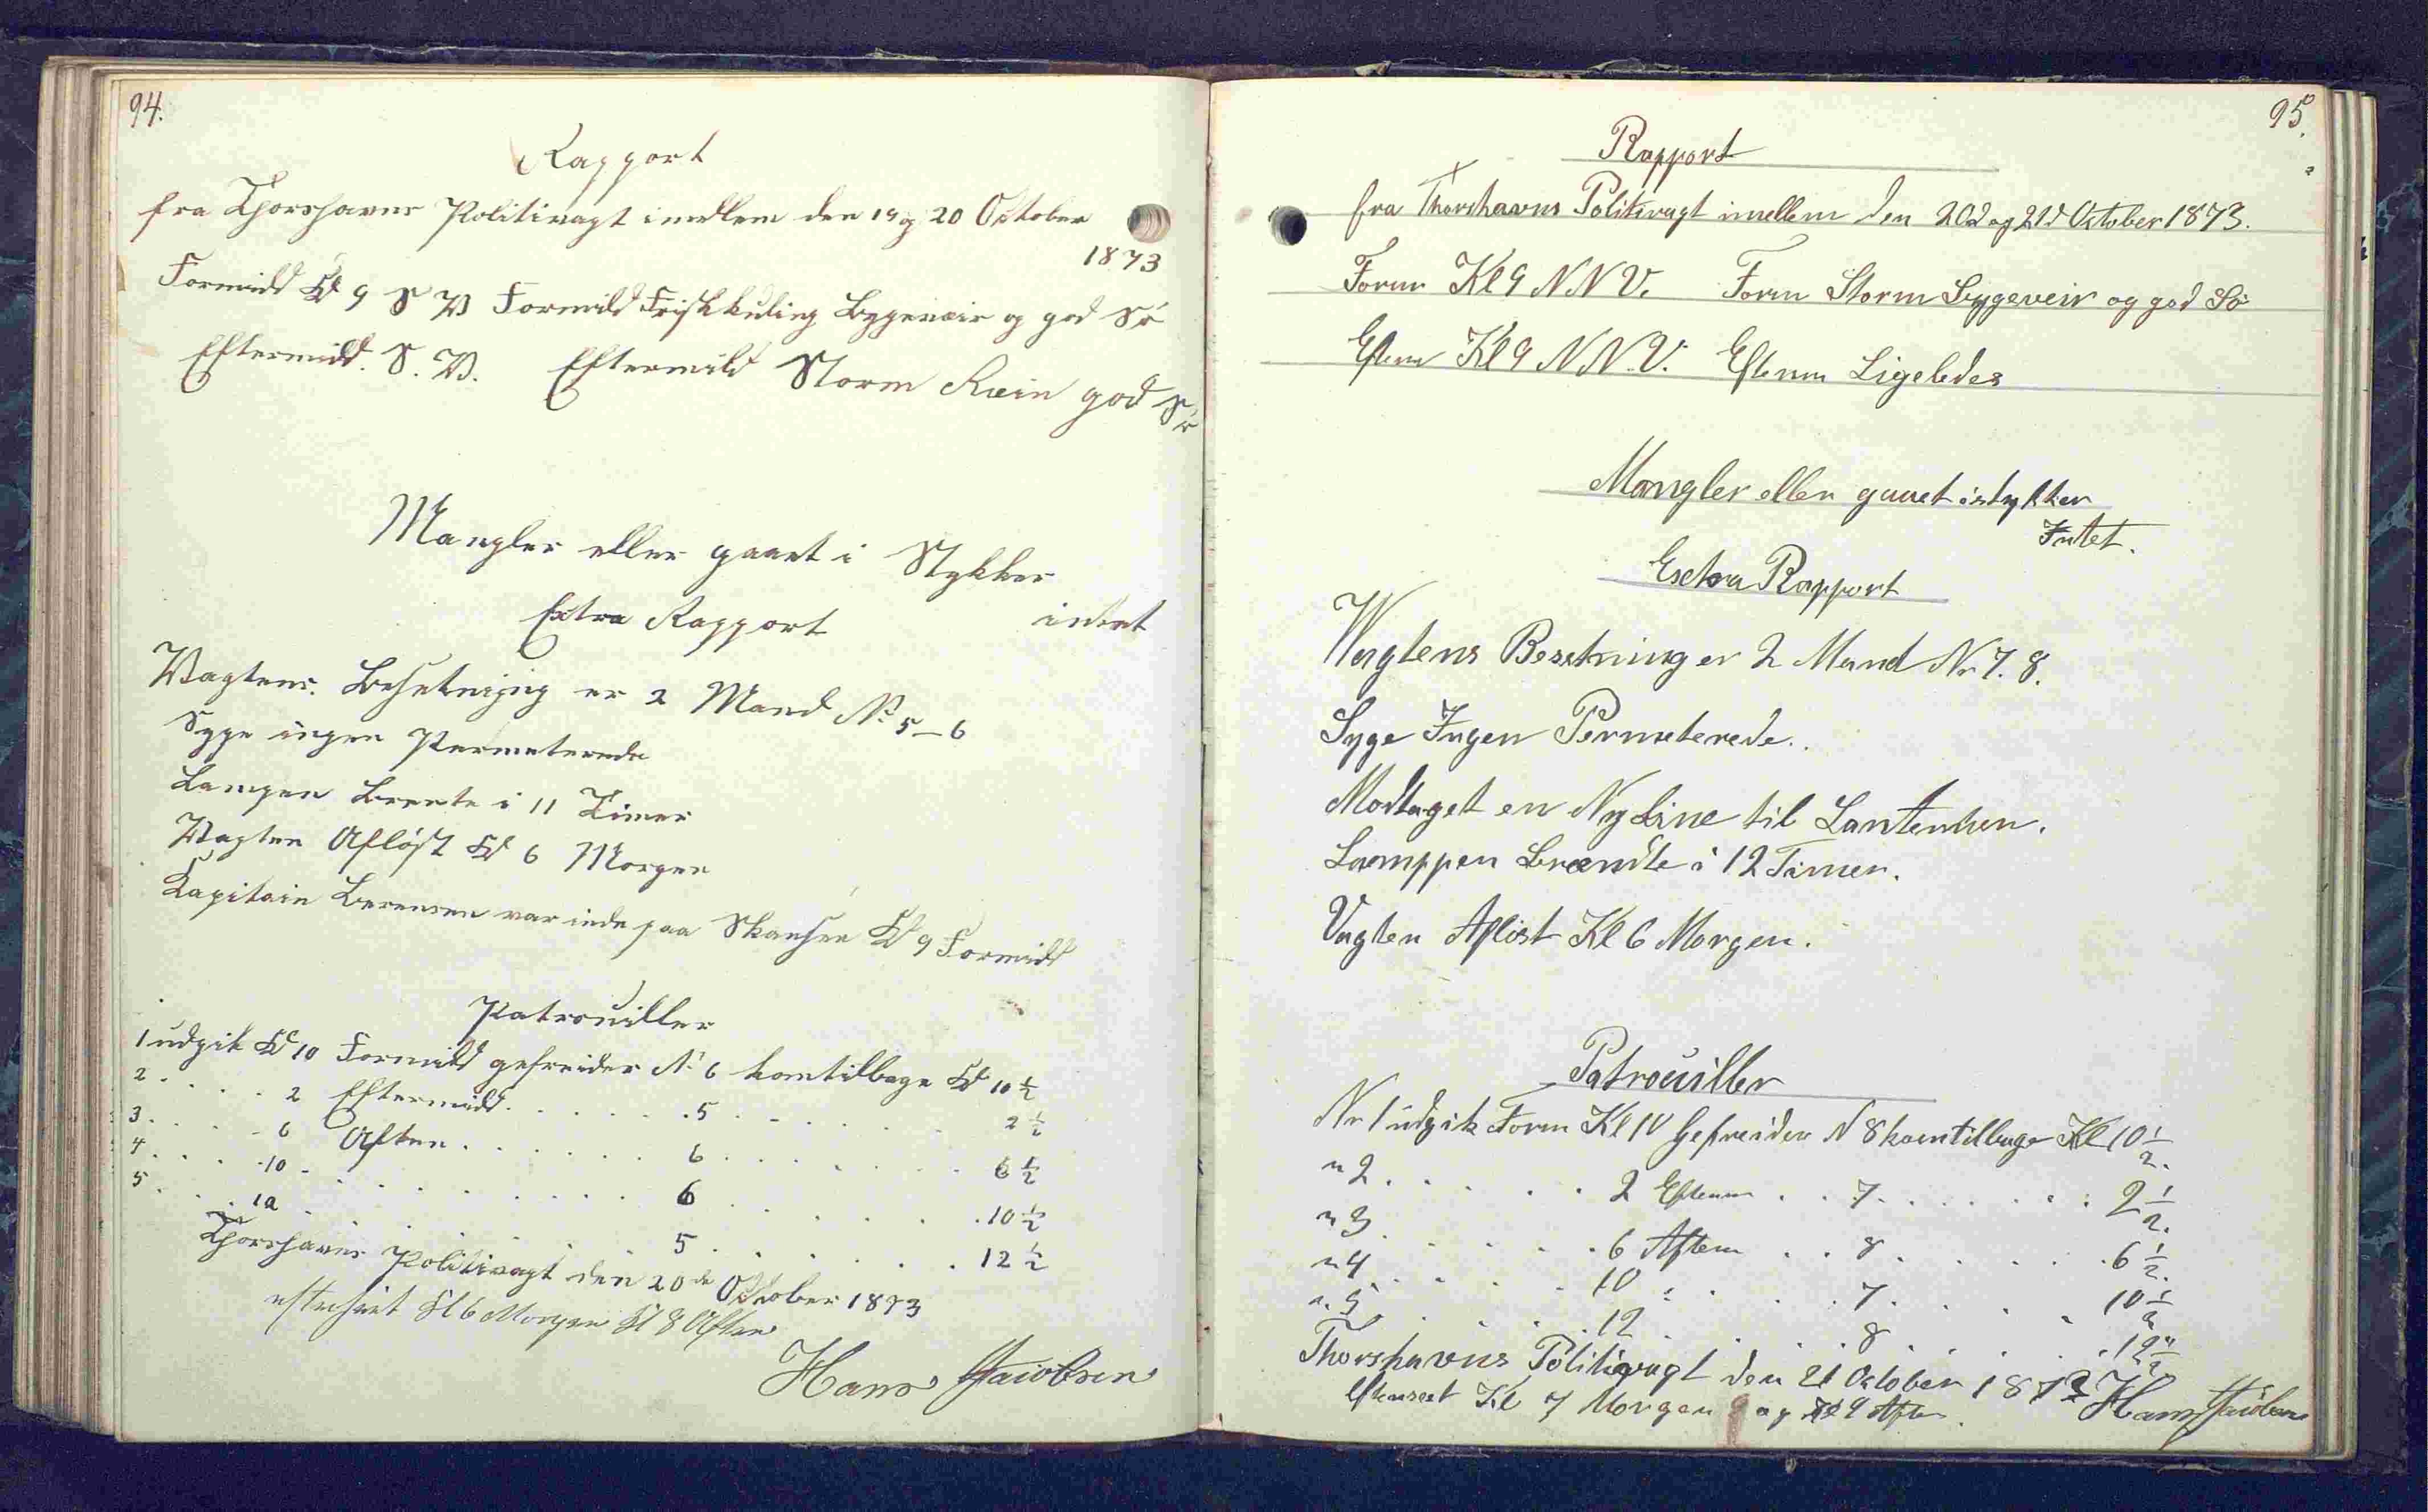 94.
Rapport
fra Thorshavns Politivagt imellem den 19 og 20 October
1873
Formidd Kl 9 S V Formidd Friskkuling Bygeveir og god Sö
Eftermidd. S. V. Eftermidd Storm Rein god Sö
Mangler eller gaaet i Stykker
intet
Extra Rapport
Vagtens. Besetning er 2 Mand No 5–6
Syge ingen Permeterede
Lampen Brente i 11 Timer
Vagten Aflöst Kl 6 Morgen
Kapitain Berensen var inde paa Skansen Kl 9 Formidd
Patrouiller
1 udgik Kl 10 Formidd gefreider No 6 kom tilbage Kl 10 1/2
2 . . . . 2 Eftermidd. . . . . . . 5 . . . . . . 2 1/2
3 . . . . 6 Aften . . . . . . 6 . . . . . . 6 1/2
4 . . . . 10 . . . . . . . . . 6 . . . . . . 10 1/2
5 . . . . 12 . . . . . . . . . 5 . . . . . . 12 1/2
Thorshavns Politivagt den 20de October 1873
efterseet Kl 6 Morgen Kl 8 Aften
Hans Jacobsen
95.
Rapport
fra Thorshavns Politivagt imellem den 20d og 21d October 1873.
Form Kl 9 N N V. Form Storm Bygeveir og god Sö
Efterm Kl 9 N N. V. Efterm Ligeledes
Mangler eller gaaet istykker
Intet.
Exstra Rapport
Vagtens Besetning er 2 Mand Nr 7. 8.
Syge Ingen Permeterede..
Modtaget en Ny Line til Lanternen.
Lamppen Brændte i 12 Timer.
Vagten Aflöst Kl 6 Morgen.
Patrouiller
Nr 1 udgik Form Kl 10 Gefreider N 8 kom tilbage Kl 10 1/2.
" 2 . . . . . 2 Efterm . . 7 . . . . . . . 2 1/2.
" 3 . . . . . 6 Aften . . 8 . . . . . . 6 1/2.
" 4 . . . . . 10 " . . . 7 . . . . 10 1/2
" 5 . . . . 12 . . . . 8 . . . . . 12 1/2
Thorshavns Politivagt den 21 October 1873
Efterseet Kl 7 Morgen og Kl 9 Aften.
Hans Jacobsen